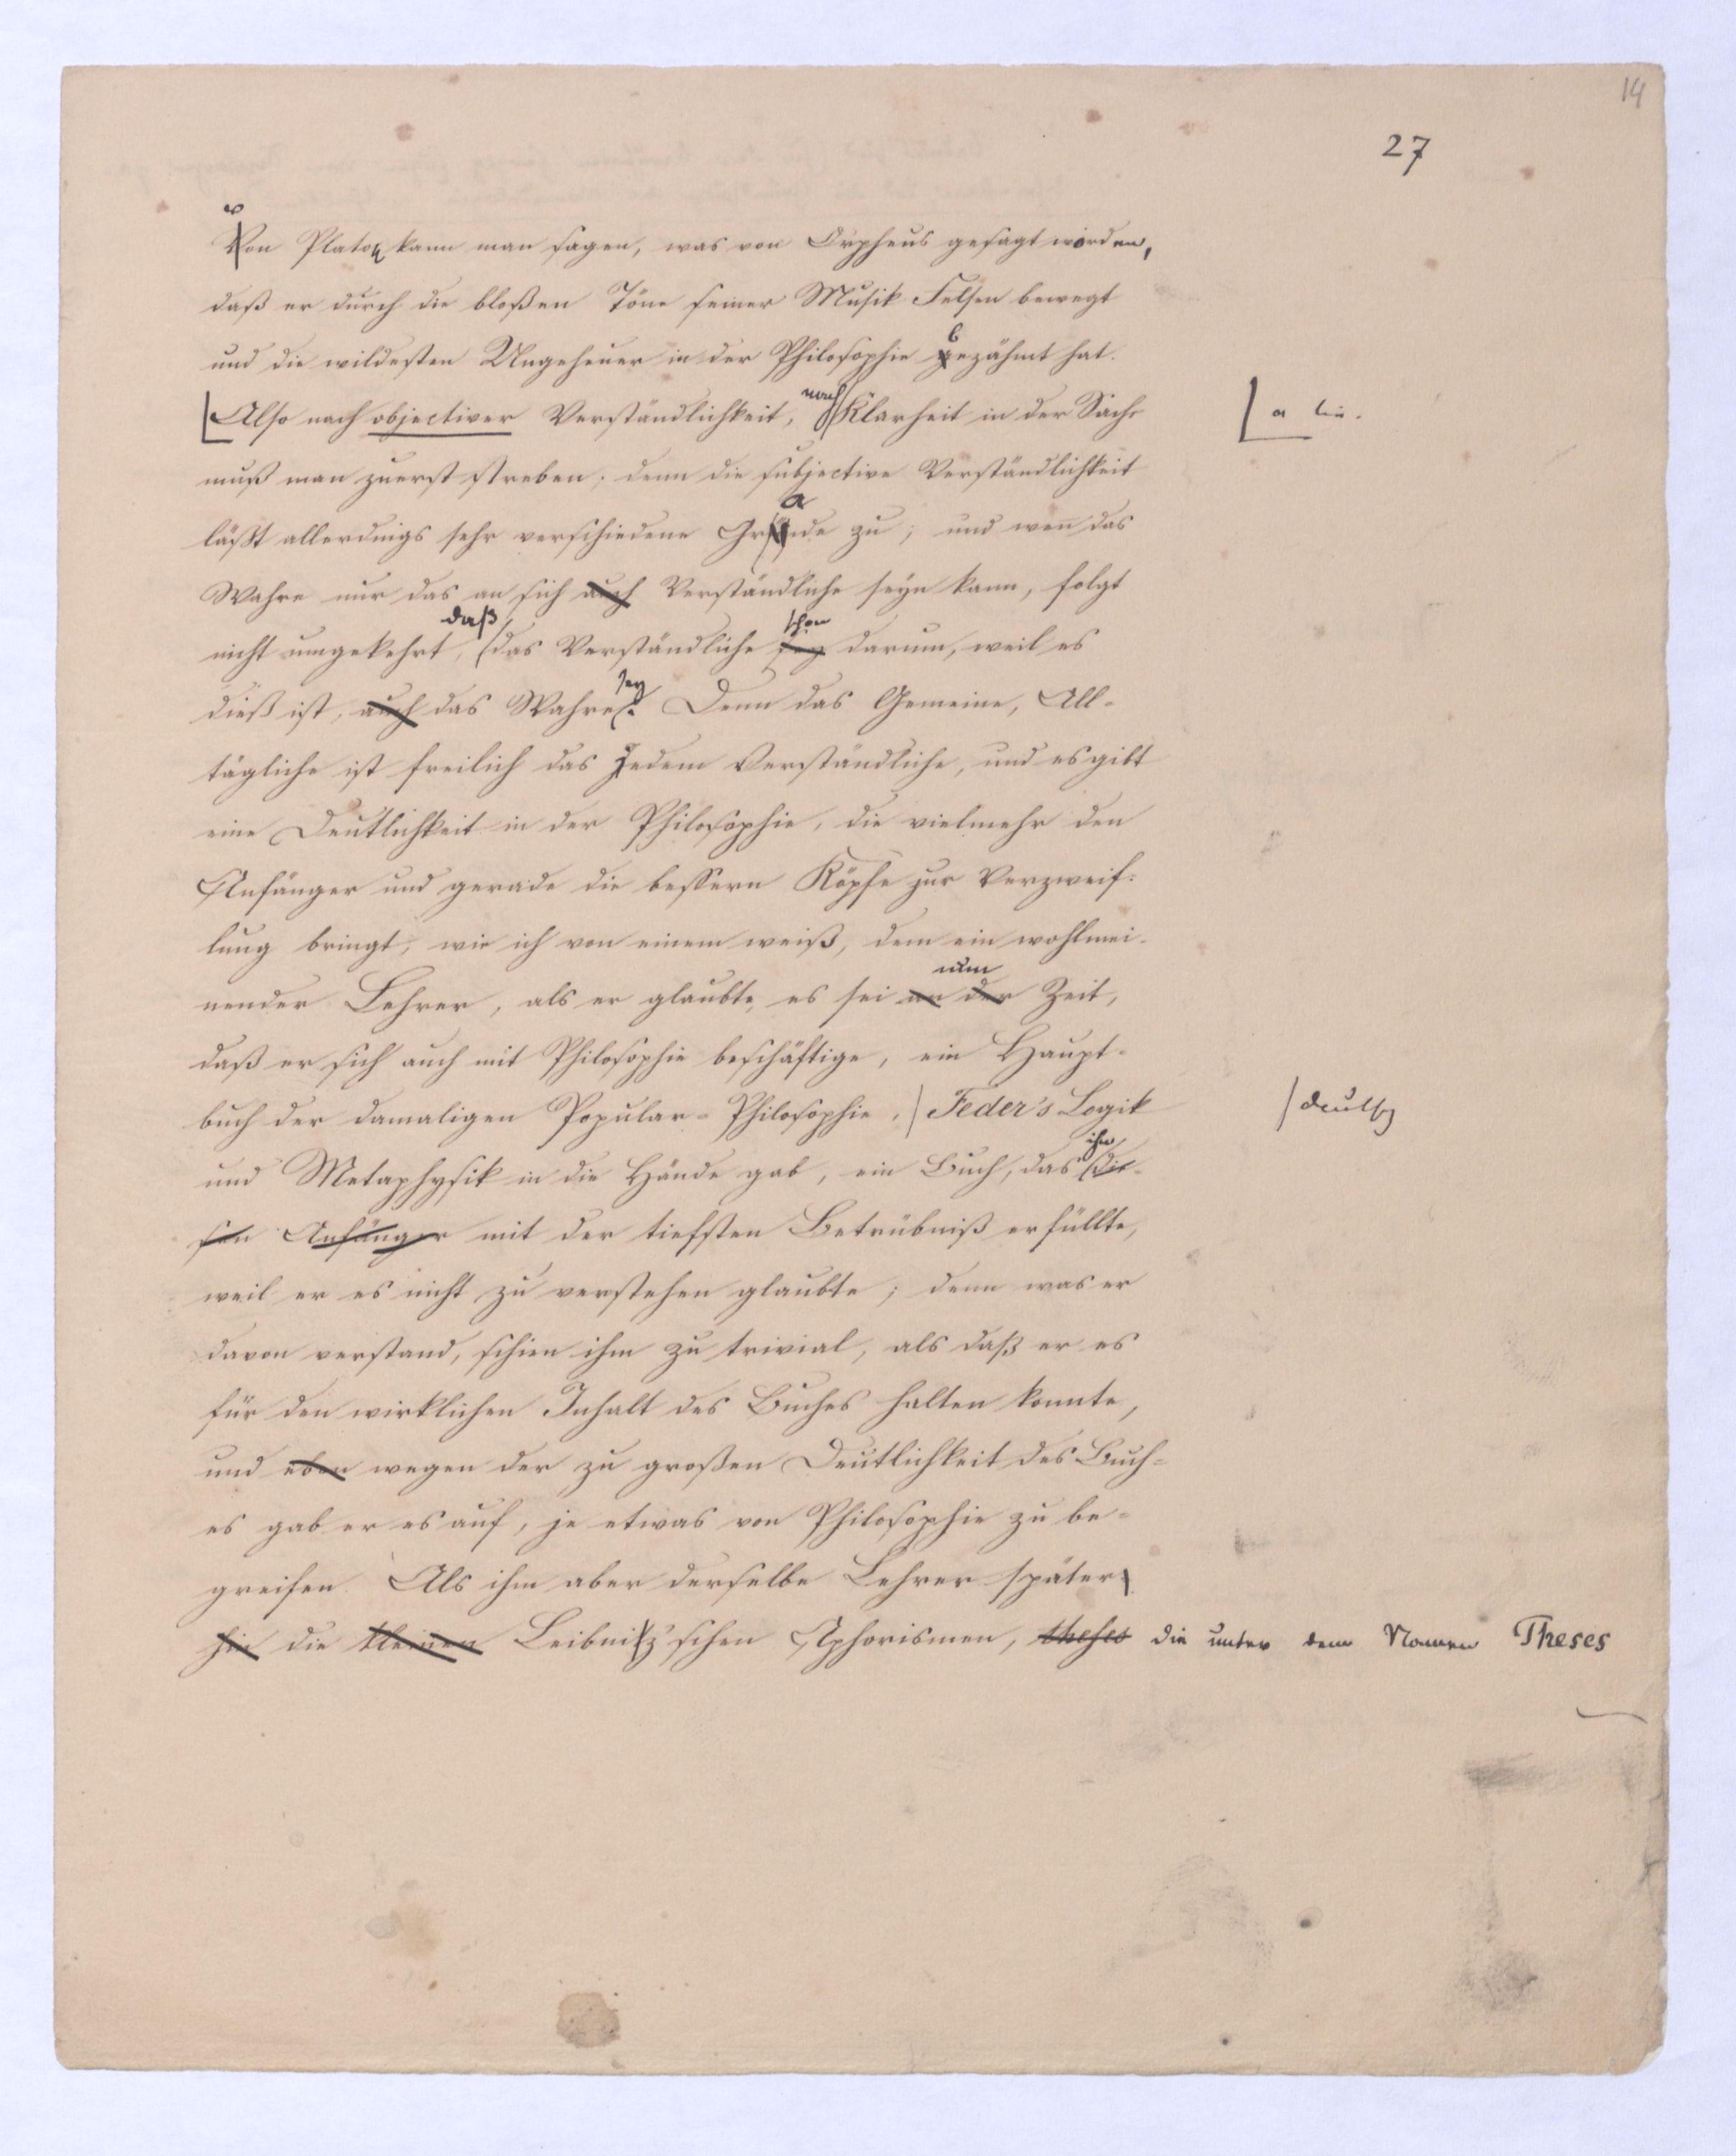 14
27
Von Platon kann man sagen, was von Orpheus gesagt worden,
daß er durch die bloßen Töne seiner Musik Felsen bewegt
und die wildesten Ungeheuer in der Philosophie bezähmt hat.
Also nach objectiver Verständlichkeit, nach Klarheit in der Sache
a lin.
muß man zuerst streben; denn die subjective Verständlichkeit
läßt allerdings sehr verschiedene Grade zu; und wenn das
Wahre nur das an sich auch Verständliche seyn kann, folgt
nicht umgekehrt, daß das Verständliche sey schon darum, weil es
dieß ist, auch das Wahre sey. Denn das Gemeine, All-
tägliche ist freilich das Jedem Verständliche, und es gibt
eine Deutlichkeit in der Philosophie, die vielmehr den
Anfänger und gerade die bessern Köpfe zur Verzweif-
lung bringt, wie ich von einem weiß, dem ein wohlmei-
nender Lehrer, als er glaubte, es sei an der nun Zeit,
daß er sich auch mit Philosophie beschäftige, ein Haupt-
buch der damaligen Popular-Philosophie, Feder's Logik
und Metaphysik in die Hände gab, ein Buch, das ihn die-
sen Anfänger mit der tiefsten Betrübniß erfüllte,
weil er es nicht zu verstehen glaubte; denn was er
davon verstand, schien ihm zu trivial, als daß er es
für den wirklichen Inhalt des Buches halten konnte,
und eben wegen der zu großen Deutlichkeit des Buch-
es gab er es auf, je etwas von Philosophie zu be-
greifen. Als ihm aber derselbe Lehrer später
hin die kleinen Leibnitz'schen Aphorismen, theses die unter dem Namen Theses